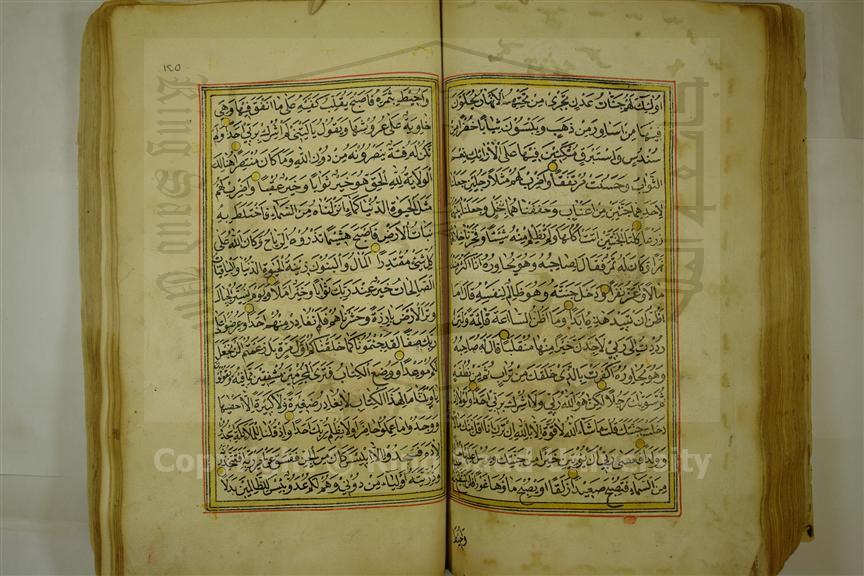 اولئك لهم جنات عدن تجري من تحتهم الانهار يحلون
فيها من اساور من ذهب ويلبسون ثيابا خضرا من
سندس واستبرق متكئين فيها على الارائك نعم
الثواب وحسنت مرتفقا واضرب لهم مثلا رجلين جعلنا
لاحدهما جنتين من اعناب وحففناهما بنخل وجعلنا بينهما
زرعا كلتا الجنتين اتت اكلها ولم تظلم منه شيئا وفجرنا خلالهما
نهرا وكان له ثمر فقال لصاحبه وهو يحاوره انا اكثر منك
مالا واعز نفرا ودخل جنته وهو ظالم لنفسه قال ما
اظن ان تبيد هذه ابدا وما اظن الساعة قائمة ولئن
رددت الى ربي لاجدن خيرا منها منقلبا قال له صاحبه
وهو يحاوره اكفرت بالذي خلقك من تراب ثم من نطفة
ثم سويك رجلا لكن هو الله ربي ولا اشرك بربي احدا ولولا اذ
دخلت جنتك قلت ما شاء الله لا قوة الا بالله ان ترن انا اقل منك مالا
وولدا فعسى ربي ان يؤتين خيرا من جنتك ويرسل عليها حسبانا
من السماء فتصبح صعيدا زلقا او يصبح ماؤها غورا فلن
واحيط
١٢٥
واحيط بثمره فاصبح يقلب كفيه على ما انفق فيها وهي
خاوية على عروشها ويقول يا ليتني لم اشرك بربي احدا ولم
تكن له فئة ينصرونه من دون الله وما كان منتصرا هنالك
الولاية لله الحق هو خير ثوابا وخير عقبا واضرب لهم
مثل الحيوة الدنيا كماء انزلناه من السماء فاختلط به
نبات الارض فاصبح هشيما تذروه الرياح وكان الله على
كل شئ مقتدرا المال والبنون زينة الحيوة الدنيا والباقيات
الصالحات خير عند ربك ثوابا وخير املا ويوم نسير الجبال
وترى الارض بارزة وحشرناهم فلم نغادر منهم احدا وعرضوا على
ربك صفا لقد جئتمونا كما خلقناكم اول مرة بل زعمتم الن نجعل
لكم موعدا ووضع الكتاب فترى المجرمين مشفقين مما فيه ويقولون
يا ويلتنا مال هذا الكتاب لا يغادر صغيرة ولا كبيرة الا احصيها
ووجدوا ما عملوا حاضرا ولا يظلم ربك احدا واذ قلنا للملائكة اسجدوا
لادم فسجدوا الا ابليس كان من الجن ففسق عن امر ربه افتتخذونه
وذريته اولياء من دوني وهم لكم عدو بئس للظالمين بدلا
Copyright © King Saud University